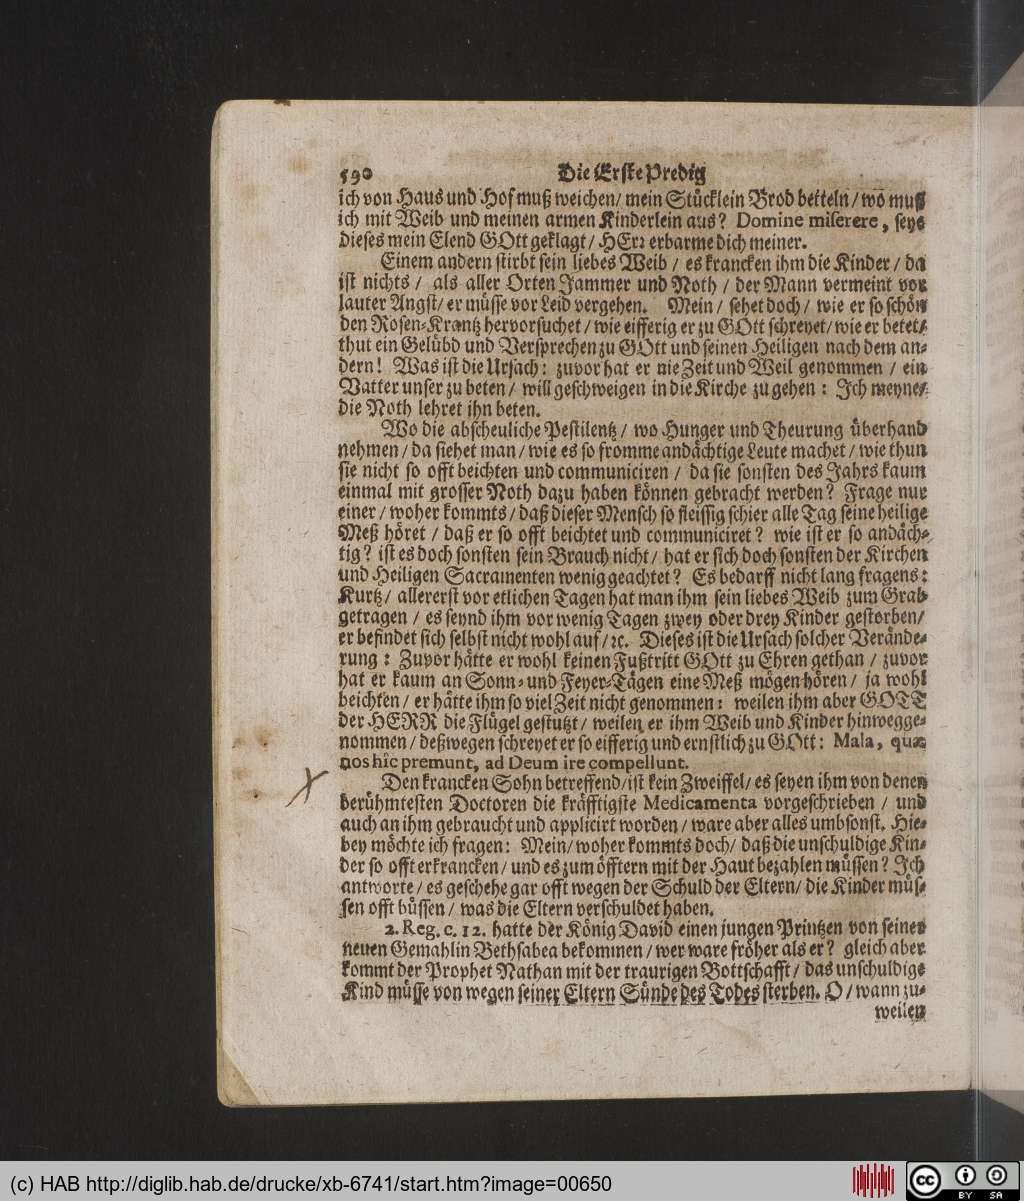 590 Die Erste Predig
ich von Haus und Hof muß weichen/ mein Stücklein Brod betteln/ wo muß
ich mit Weib und meinen armen Kinderlein aus? Domine miserere, seye
dieses mein Elend GOtt geklagt/ HErz erbarme dich meiner.
Einem andern stirbt sein liebes Weib/ es krancken ihm die Kinder/ da
ist nichts/ als aller Orten Jammer und Noth/ der Mann vermeint vor
lauter Angst/ er müsse vor Leid vergehen. Mein/ sehet doch/ wie er so schön
den Rosen-Krantz hervorsuchet/ wie eifferig er zu GOtt schreyet/ wie er betet/
thut ein Gelübd und Versprechen zu GOtt und seinen Heiligen nach dem an-
dern! Was ist die Ursach: zuvor hat er nie Zeit und Weil genommen/ ein
Vatter unser zu beten/ will geschweigen in die Kirche zu gehen: Ich meyne/
die Noth lehret ihn beten.
Wo die abscheuliche Pestilentz/ wo Hunger und Theurung überhand
nehmen/ da siehet man/ wie es so fromme andächtige Leute machet/ wie thun
sie nicht so offt beichten und communiciren/ da sie sonsten des Jahrs kaum
einmal mit grosser Noth dazu haben können gebracht werden? Frage nur
einer/ woher kommts/ daß dieser Mensch so fleissig schier alle Tag seine heilige
Meß höret/ daß er so offt beichtet und communiciret? wie ist er so andäch-
tig? ist es doch sonsten sein Brauch nicht/ hat er sich doch sonsten der Kirchen
und Heiligen Sacramenten wenig geachtet? Es bedarff nicht lang fragens:
Kurtz/ allererst vor etlichen Tagen hat man ihm sein liebes Weib zum Grab
getragen/ es seynd ihm vor wenig Tagen zwey oder drey Kinder gestorben/
er befindet sich selbst nicht wohl auf/ ꝛc. Dieses ist die Ursach solcher Verände-
rung: Zuvor hätte er wohl keinen Fußtritt GOtt zu Ehren gethan/ zuvor
hat er kaum an Sonn- und Feyer-Tägen eine Meß mögen hören/ ja wohl
beichten/ er hätte ihm so viel Zeit nicht genommen: weilen ihm aber GOTT
der HERR die Flügel gestutzt/ weilen er ihm Weib und Kinder hinwegge-
nommen/ deßwegen schreyet er so eifferig und ernstlich zu GOtt: Mala, quæ
nos hîc premunt, ad Deum ire compellunt.
Den krancken Sohn betreffend/ ist kein Zweiffel/ es seyen ihm von denen
berühmtesten Doctoren die kräfftigste Medicamenta vorgeschrieben/ und
auch an ihm gebraucht und applicirt worden/ ware aber alles umbsonst. Hie-
bey möchte ich fragen: Mein/ woher kommts doch/ daß die unschuldige Kin-
der so offt erkrancken/ und es zum öfftern mit der Haut bezahlen müssen? Ich
antworte/ es geschehe gar offt wegen der Schuld der Eltern/ die Kinder müs-
sen offt büssen/ was die Eltern verschuldet haben.
2. Reg. c. 12. hatte der König David einen jungen Printzen von seiner
neuen Gemahlin Bethsabea bekommen/ wer ware fröher als er? gleich aber
kommt der Prophet Nathan mit der traurigen Bottschafft/ das unschuldige
Kind müsse von wegen seiner Eltern Sünde des Todes sterben. O/ wann zu-
weilen
(c) HAB http://diglib.hab.de/drucke/xb-6741/start.htm?image=00650
cc BY SA